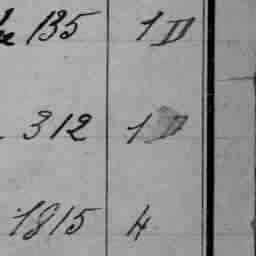 135 1 D
312 1 D
1815 4